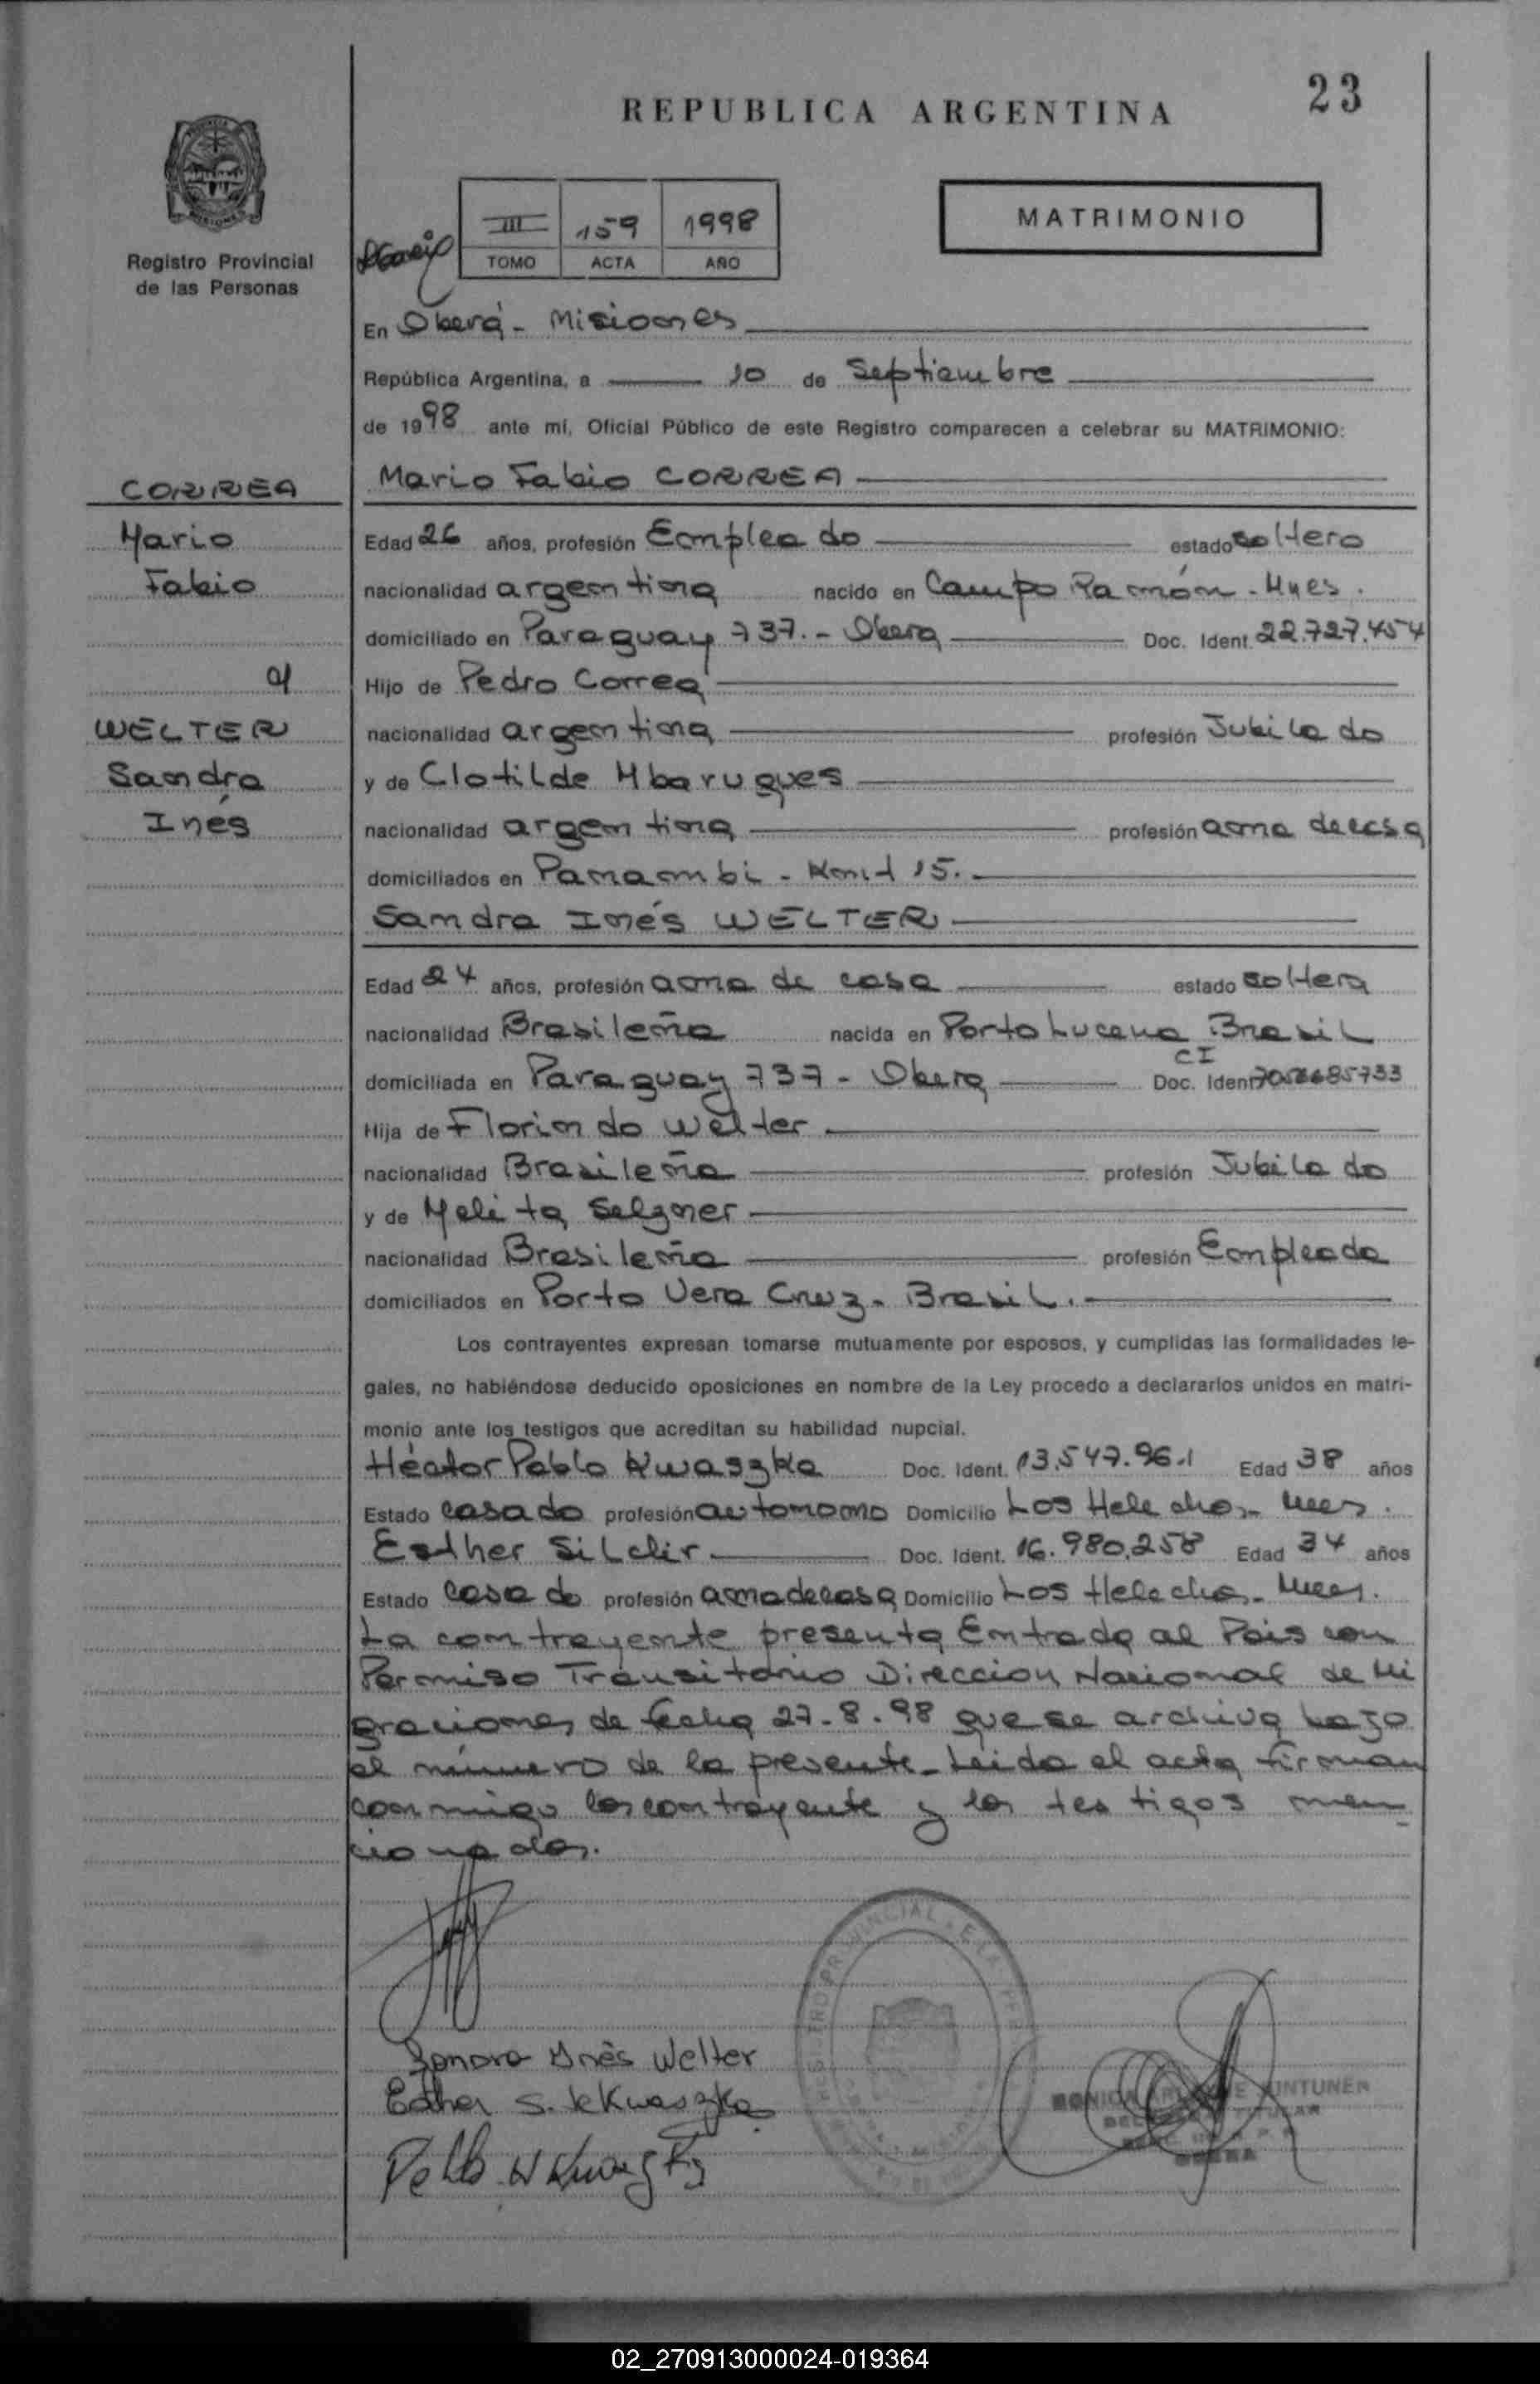 23
REPUBLICA ARGENTINA
MATRIMONIO
Registro Provincial
de las Personas
III 159 1998
TOMO ACTA AÑO
En Oberá - Misiones
República Argentina, a 10 de Septiembre
de 1998 ante mí, Oficial Público de este Registro comparecen a celebrar su MATRIMONIO:
CORREA
Mario Fabio CORREA
Mario
Edad 26 años, profesión Empleado estado soltero
Fabio
nacionalidad argentina nacido en Campo Ramón - Mnes.
domiciliado en Paraguay 737.- Obera Doc. Ident. 22.727.454
Hijo de Pedro Correa
WELTER
nacionalidad argentina profesión Jubilado
Sandra
y de Clotilde Mbarugues
Inés
nacionalidad argentina profesión ama de casa
domiciliados en Panambi - 15.-
Sandra Inés WELTER
Edad 24 años, profesión ama de casa estado soltera
nacionalidad Brasileña nacida en Porto Lucena Brasil
CI
domiciliada en Paraguay 737 - Obera Doc. Ident
Hija de Florindo Welter
nacionalidad Brasileña profesión Jubilado
y de Melita Selzner
nacionalidad Brasileña profesión Empleada
domiciliados en Porto Vera Cruz - Brasil.-
Los contrayentes expresan tomarse mutuamente por esposos, y cumplidas las formalidades le-
gales, no habiéndose deducido oposiciones en nombre de la Ley procedo a declararlos unidos en matri-
monio ante los testigos que acreditan su habilidad nupcial.
Héctor Pablo Kwaszka Doc. Ident. 13.547.961 Edad 38 años
Estado casado profesión autonomo Domicilio Los Helechos - Mnes.
Esther Silclir Doc. Ident. 16.980.258 Edad 34 años
Estado casado profesión ama de casa Domicilio Los Helechos - Mnes.
La contrayente presenta Entrada al Pais con
Permiso Transitorio Direccion Nacional de Mi
graciones de fecha 27-8-98 que se archiva bajo
el número de la presente - Leida el acta firman
conmigo los contrayente y los testigos men-
cionados.
Sandra Inés Welter
Esther S. de Kwaszka
02_270913000024-019364